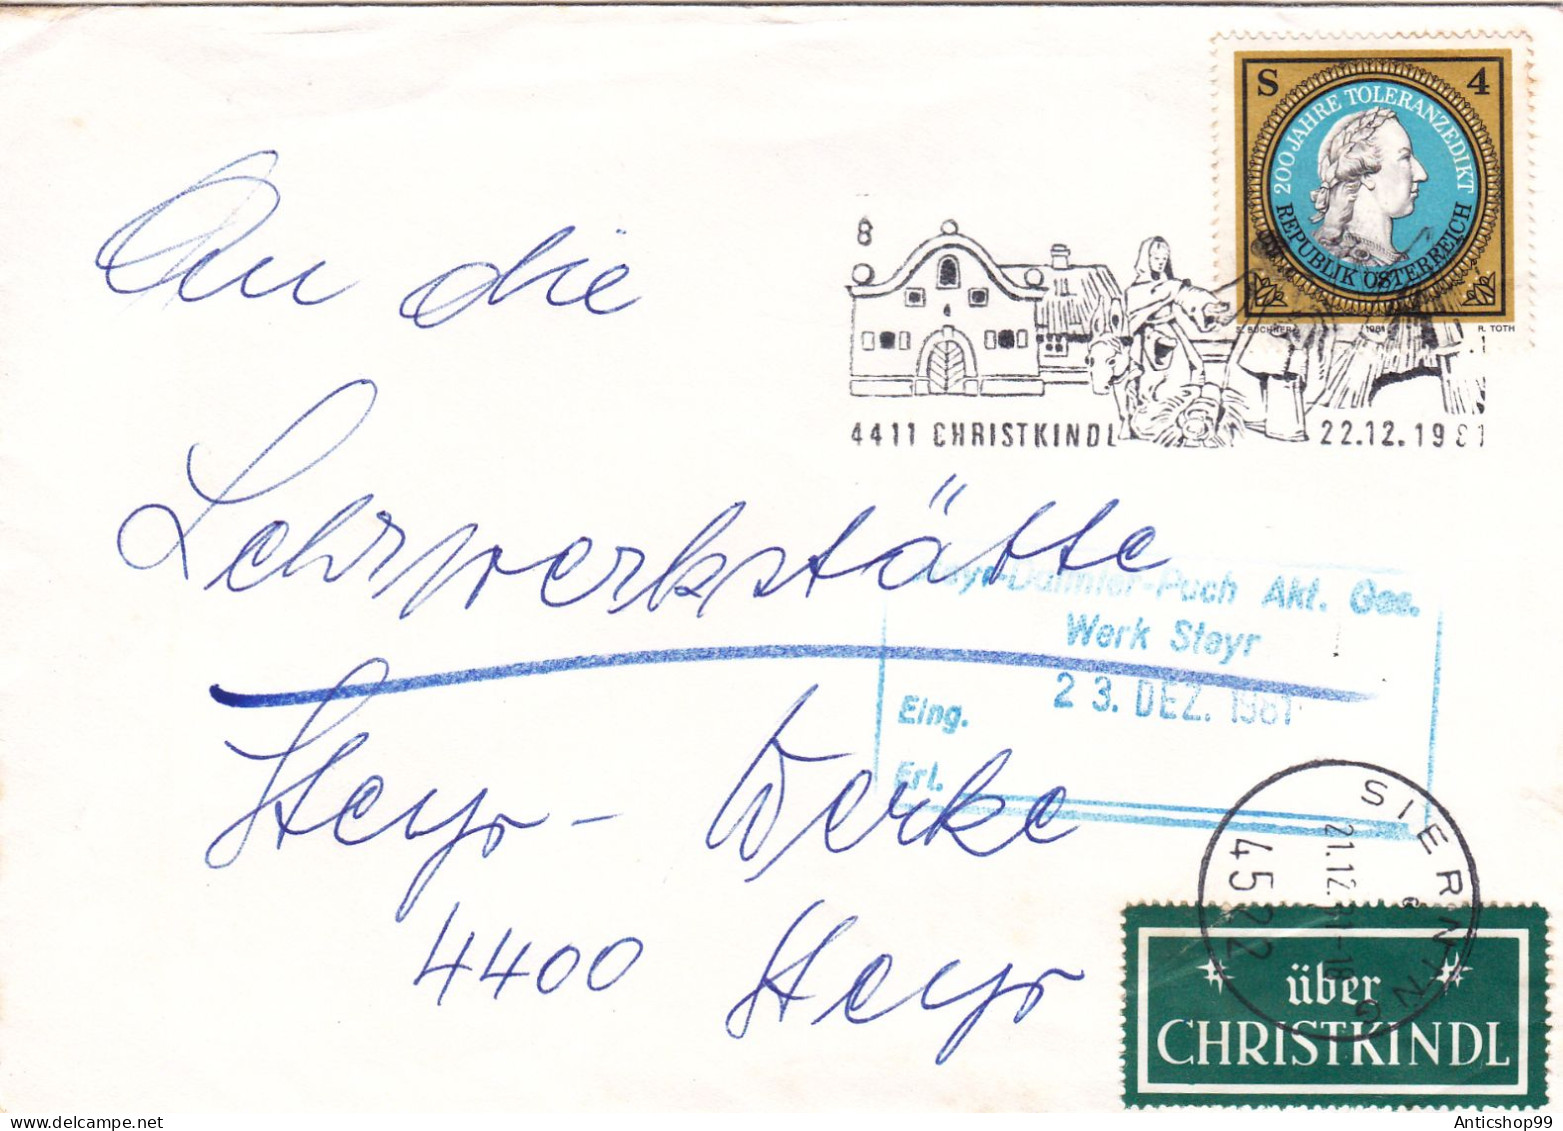 S 4
200 JAHRE TOLERANZEDIKT
REPUBLIK ÖSTERREICH
1981
R. TOTH
8
4411 CHRISTKINDL
22.12.1981
An die
Lehrwerkstätte
Steyr-Werke
4400 Steyr
Steyr-Daimler-Puch Akt. Ges.
Werk Steyr
23. DEZ. 1981
Eing.
Erl.
SIERNING
21.12.81-18
4522
über
CHRISTKINDL
Anticshop99